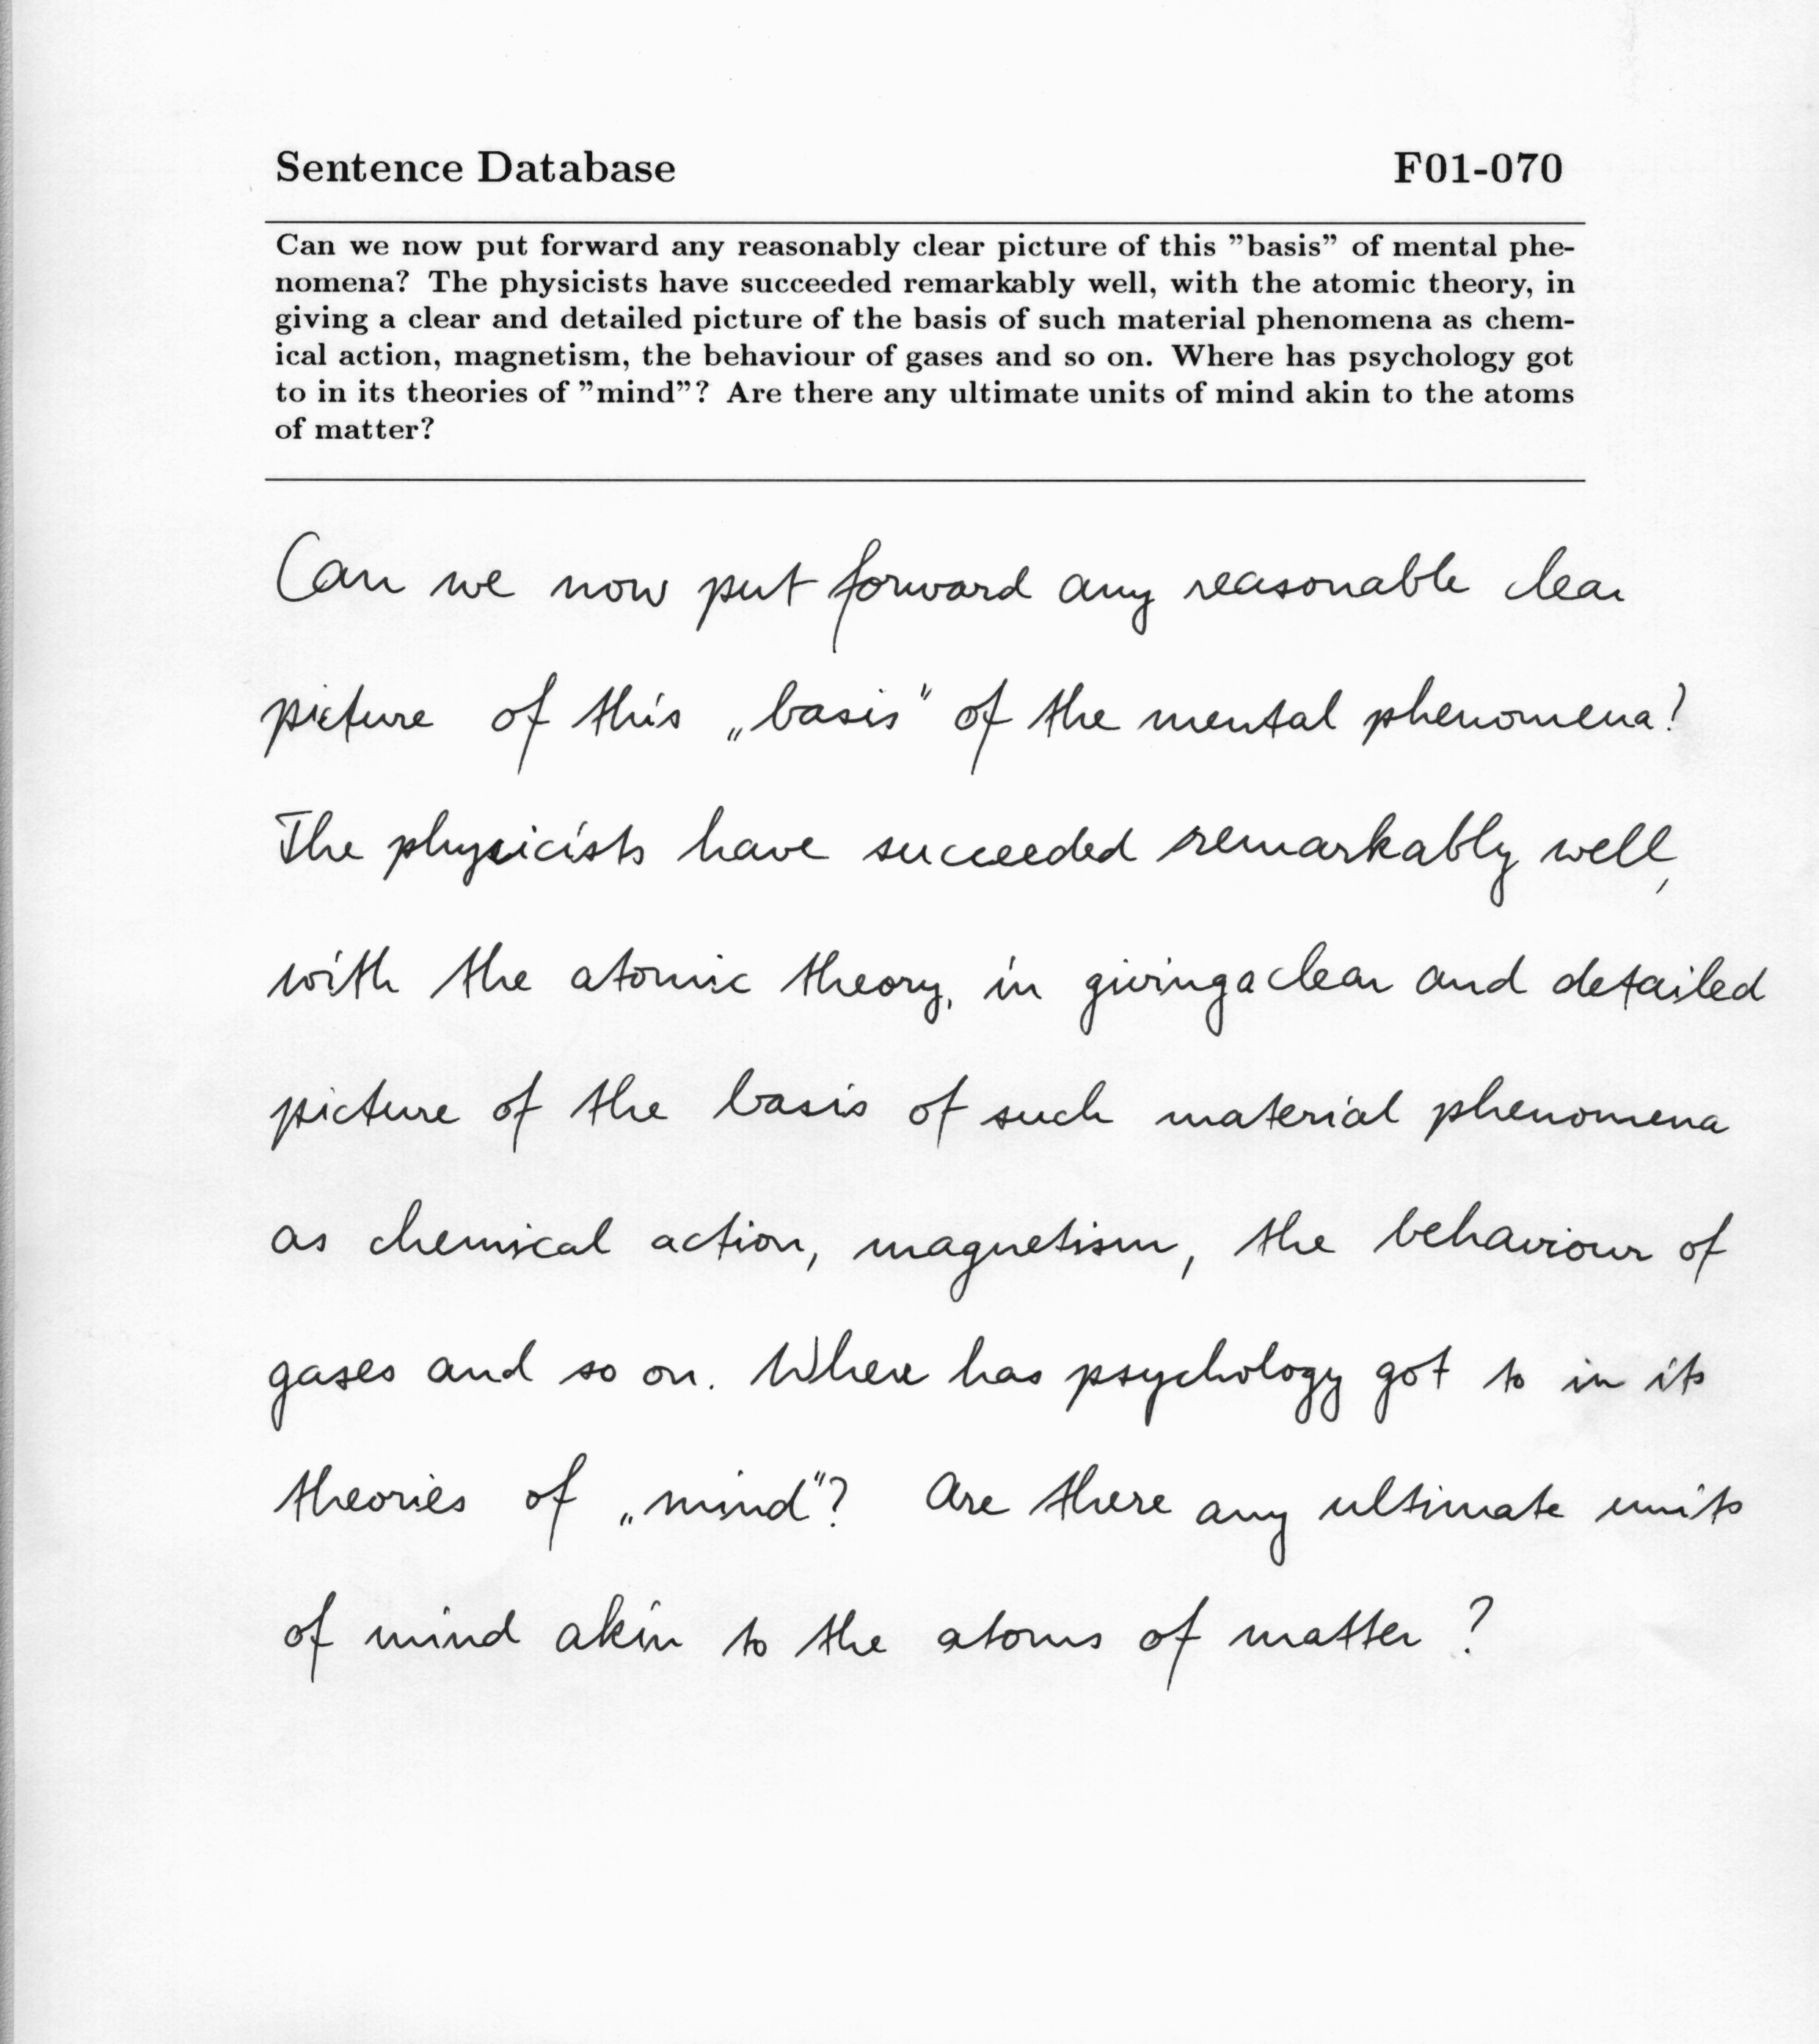 Sentence Database F01-070
Can we now put forward any reasonably clear picture of this ”basis” of mental phe-
nomena? The physicists have succeeded remarkably well, with the atomic theory, in
giving a clear and detailed picture of the basis of such material phenomena as chem-
ical action, magnetism, the behaviour of gases and so on. Where has psychology got
to in its theories of ”mind”? Are there any ultimate units of mind akin to the atoms
of matter?
Can we now put forward any reasonable clear
picture of this „basis" of the mental phenomena?
The physicists have succeeded remarkably well,
with the atomic theory, in giving a clear and detailed
picture of the basis of such material phenomena
as chemical action, magnetism, the behaviour of
gases and so on. Where has psychology got to in its
theories of „mind"? Are there any ultimate units
of mind akin to the atoms of matter?